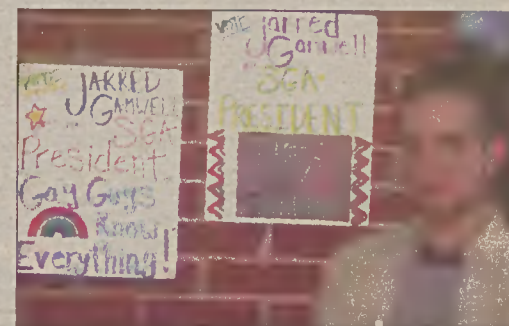 VOTE JARRED
GAMWELL
SGA
President
Gay Guys
Know
Everything!
VOTE jarred
Gamwell
SGA
PRESIDENT